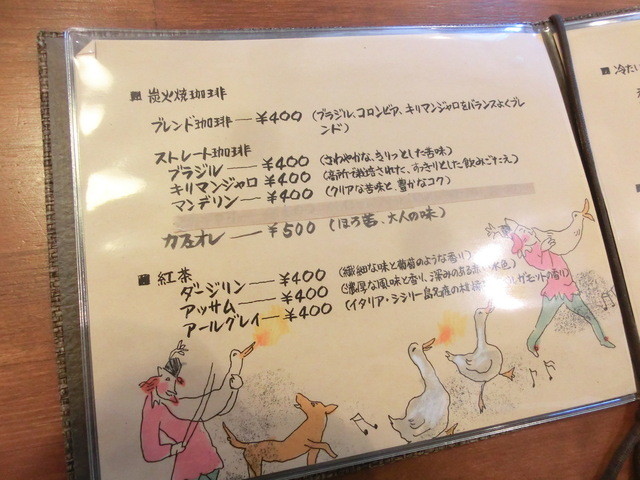 炭火焼珈琲
ブレンド珈琲 ― ¥400 (ブラジル、コロンビア、キリマンジャロをバランスよくブレ
ンド)
ストレート珈琲
ブラジル ― ¥400 (さわやかな、きりっとした苦味)
キリマンジャロ ¥400 (高所で栽培された、すっきりとした飲みごたえ)
マンデリン ― ¥400 (クリアな苦味と、豊かなコク)
カフェオレ ― ¥500 (ほろ苦、大人の味)
紅茶
ダージリン ― ¥400 (繊細な味と葡萄のような香り)
アッサム ― ¥400 (濃厚な風味と香り、深みのある 水色)
アールグレイ ― ¥400 (イタリア・シシリー島名産の ルガモットの香り)
冷た